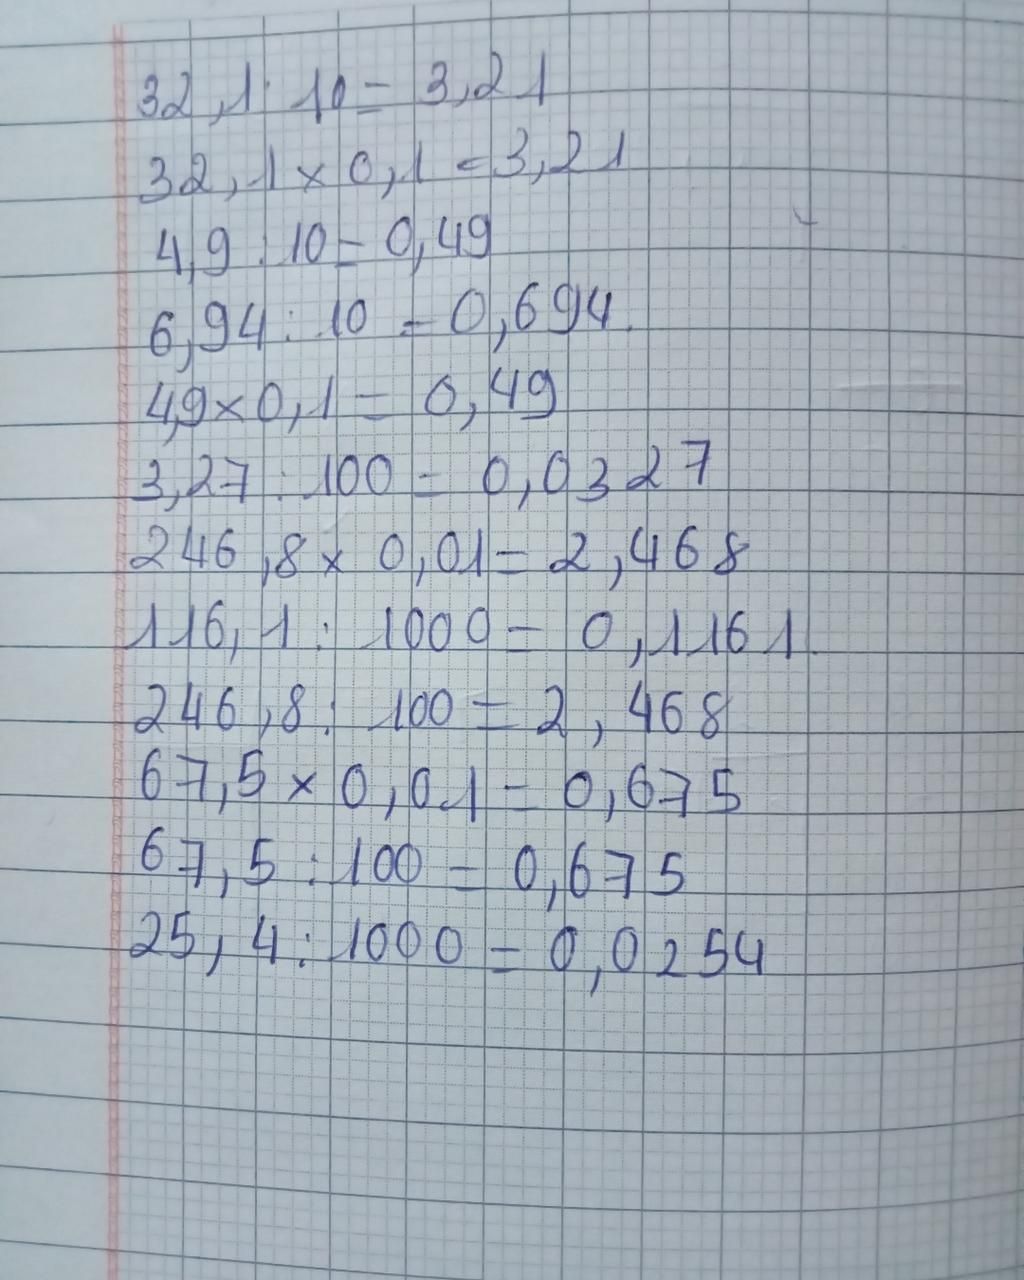 32,1: 10 = 3,21
32,1 x 0,1 = 3,21
4,9 : 10 = 0,49
6,94 : 10 = 0,694.
4,9 x 0,1 = 0,49
3,27 : 100 = 0,0327
246,8 x 0,01 = 2,468
116,1 : 1000 = 0,1161.
246,8 : 100 = 2,468
67,5 x 0,01 = 0,675
67,5 : 100 = 0,675
25,4 : 1000 = 0,0254